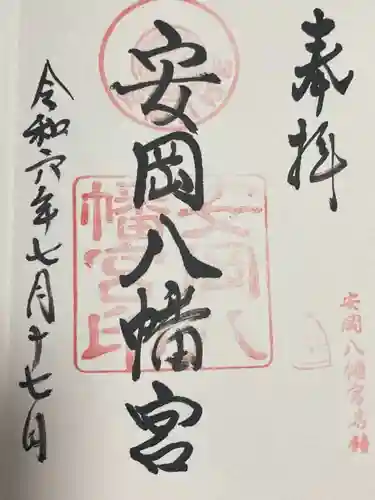 奉拝
安岡八幡宮
令和六年七月十七日
安岡八幡宮印
安岡八幡宮